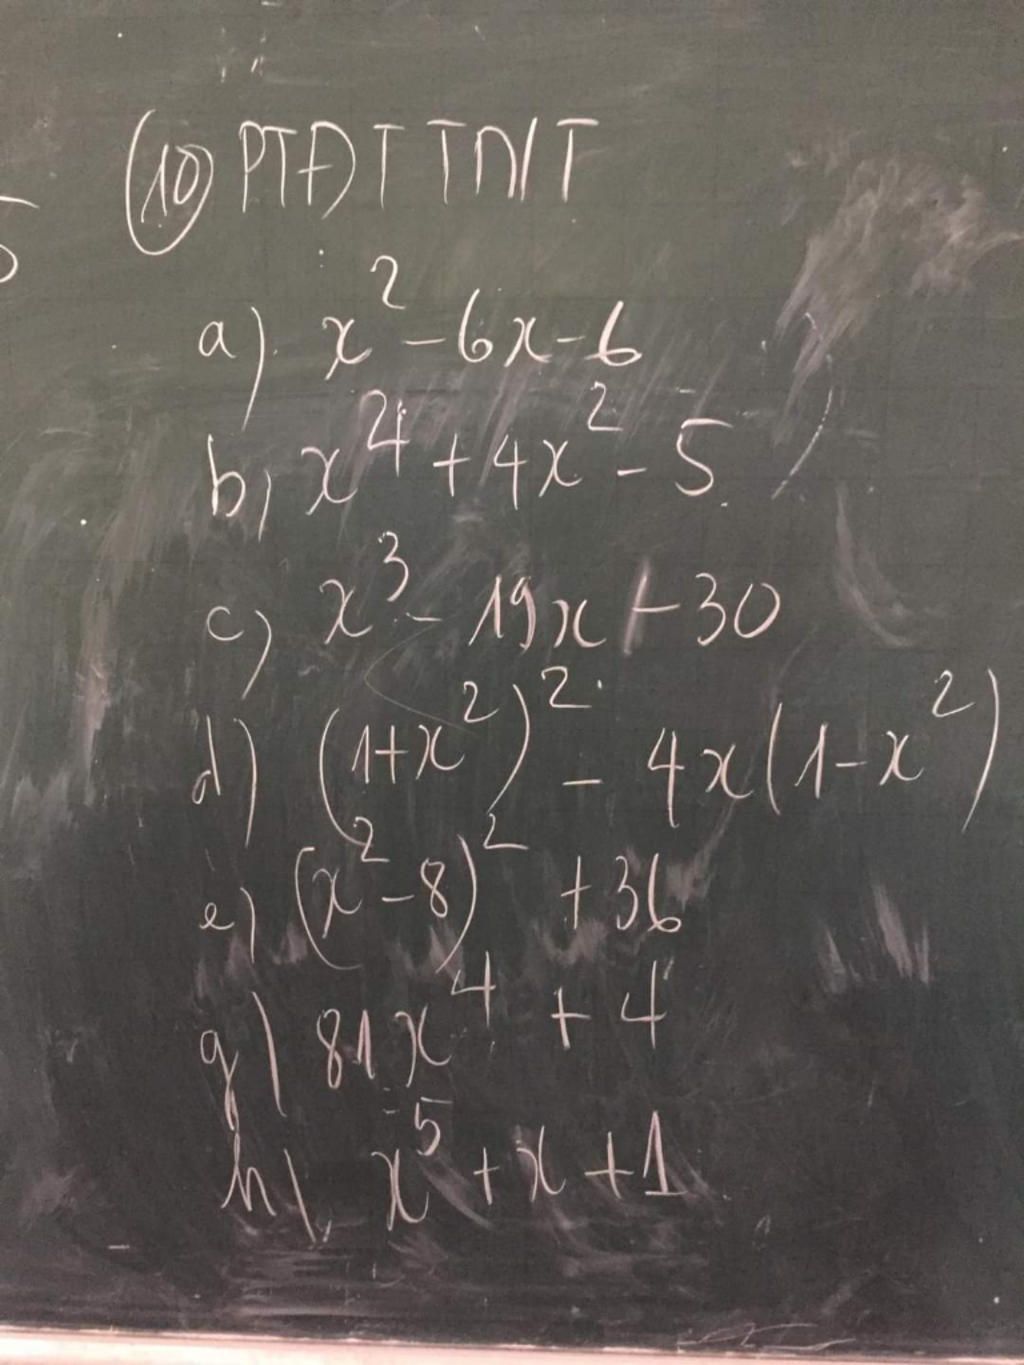 (10) PTĐT TNT
a) x² - 6x - 6
b) x⁴ + 4x² - 5
c) x³ - 19x + 30
d) (1+x²)² - 4x(1-x²)
e) (x² - 8)² + 36
g) 81x⁴ + 4
h) x⁵ + x + 1